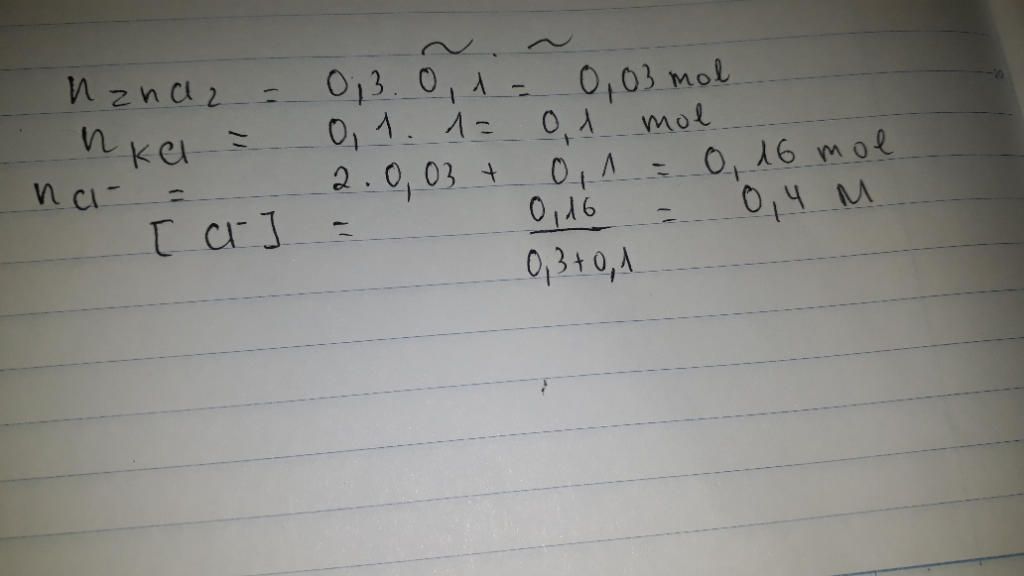 ~ . ~
n ZnCl2 = 0,3. 0,1 = 0,03 mol
n KCl = 0,1. 1 = 0,1 mol
n Cl- = 2.0,03 + 0,1 = 0,16 mol
[Cl-] = 0,16 = 0,4 M
0,3+0,1